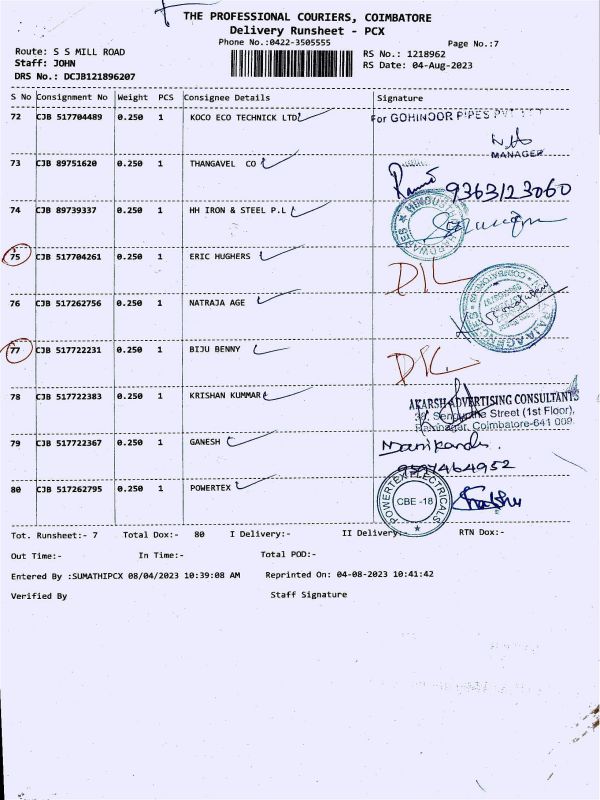 THE PROFESSIONAL COURIERS, COIMBATORE
Delivery Runsheet - PCX
Phone No.:0422-3505555
Page No.:7
Route: S S MILL ROAD
RS No.: 1218962
Staff: JOHN
RS Date: 04-Aug-2023
DRS No.: DCJB121896207
S No Consignment No Weight PCS Consignee Details Signature
72 CJB 517704489 0.250 1 KOCO ECO TECHNICK LTD
For GOHINOOR PIPES PVT
MANAGER
73 CJB 89751620 0.250 1 THANGAVEL CO
9363123060
74 CJB 89739337 0.250 1 HH IRON & STEEL P.L
HARDWARES
75 CJB 517704261 0.250 1 ERIC HUGHERS
D/L
76 CJB 517262756 0.250 1 NATRAJA AGE
AGENCIES
77 CJB 517722231 0.250 1 BIJU BENNY
D/L
78 CJB 517722383 0.250 1 KRISHAN KUMMAR
AKARSH ADVERTISING CONSULTANTS
Street (1st Floor),
Ramnagar, Coimbatore-641 009
79 CJB 517722367 0.250 1 GANESH
Manikandn
80 CJB 517262795 0.250 1 POWERTEX
POWERTEX ELECTRICALS
CBE -18
Tot. Runsheet:- 7 Total Dox:- 80 I Delivery:- II Delivery:- RTN Dox:-
Out Time:- In Time:- Total POD:-
Entered By :SUMATHIPCX 08/04/2023 10:39:08 AM Reprinted On: 04-08-2023 10:41:42
Verified By Staff Signature